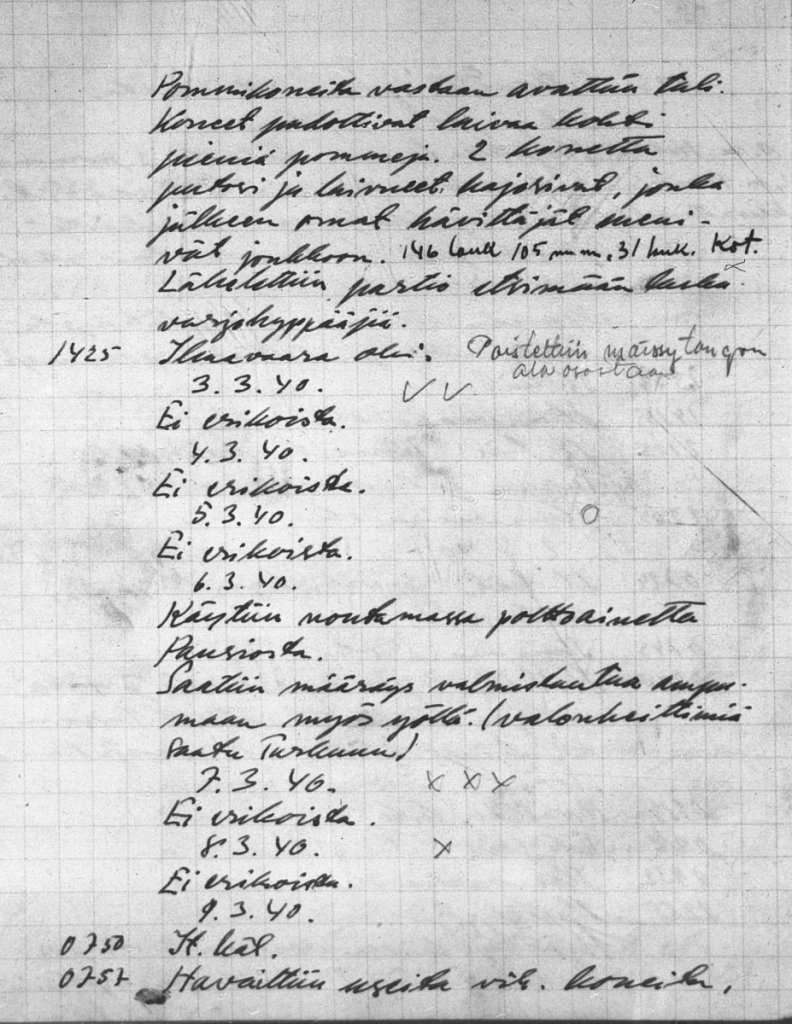 Pommikoneita vastaan avattiin tuli.
Koneet pudottivat laivaa kohti
pieniä pommeja. 2 konetta
putosi ja laivueet hajosivat, jonka
jälkeen omat hävittäjät meni-
vät joukkoon. 146 lauk 105 mm, 31 lauk. Kot.
Lähetettiin partio etsimään lasku-
varjohyppääjiä.
1425 Ilmavaara ohi. Poistettiin mäissytangon
ala osastaan
3.3.40.
Ei erikoista.
4.3.40.
Ei erikoista.
5.3.40.
Ei erikoista.
6.3.40.
Käytiin noutamassa polttoainetta
Pansiosta.
Saatiin määräys valmistautua ampu-
maan myös yöllä. (valonheittimiä
saatu Turkuun)
7.3.40. x x x
Ei erikoista.
8.3.40. x
Ei erikoista.
9.3.40.
0750 It. häl.
0757 Havaittiin useita vih. koneita,